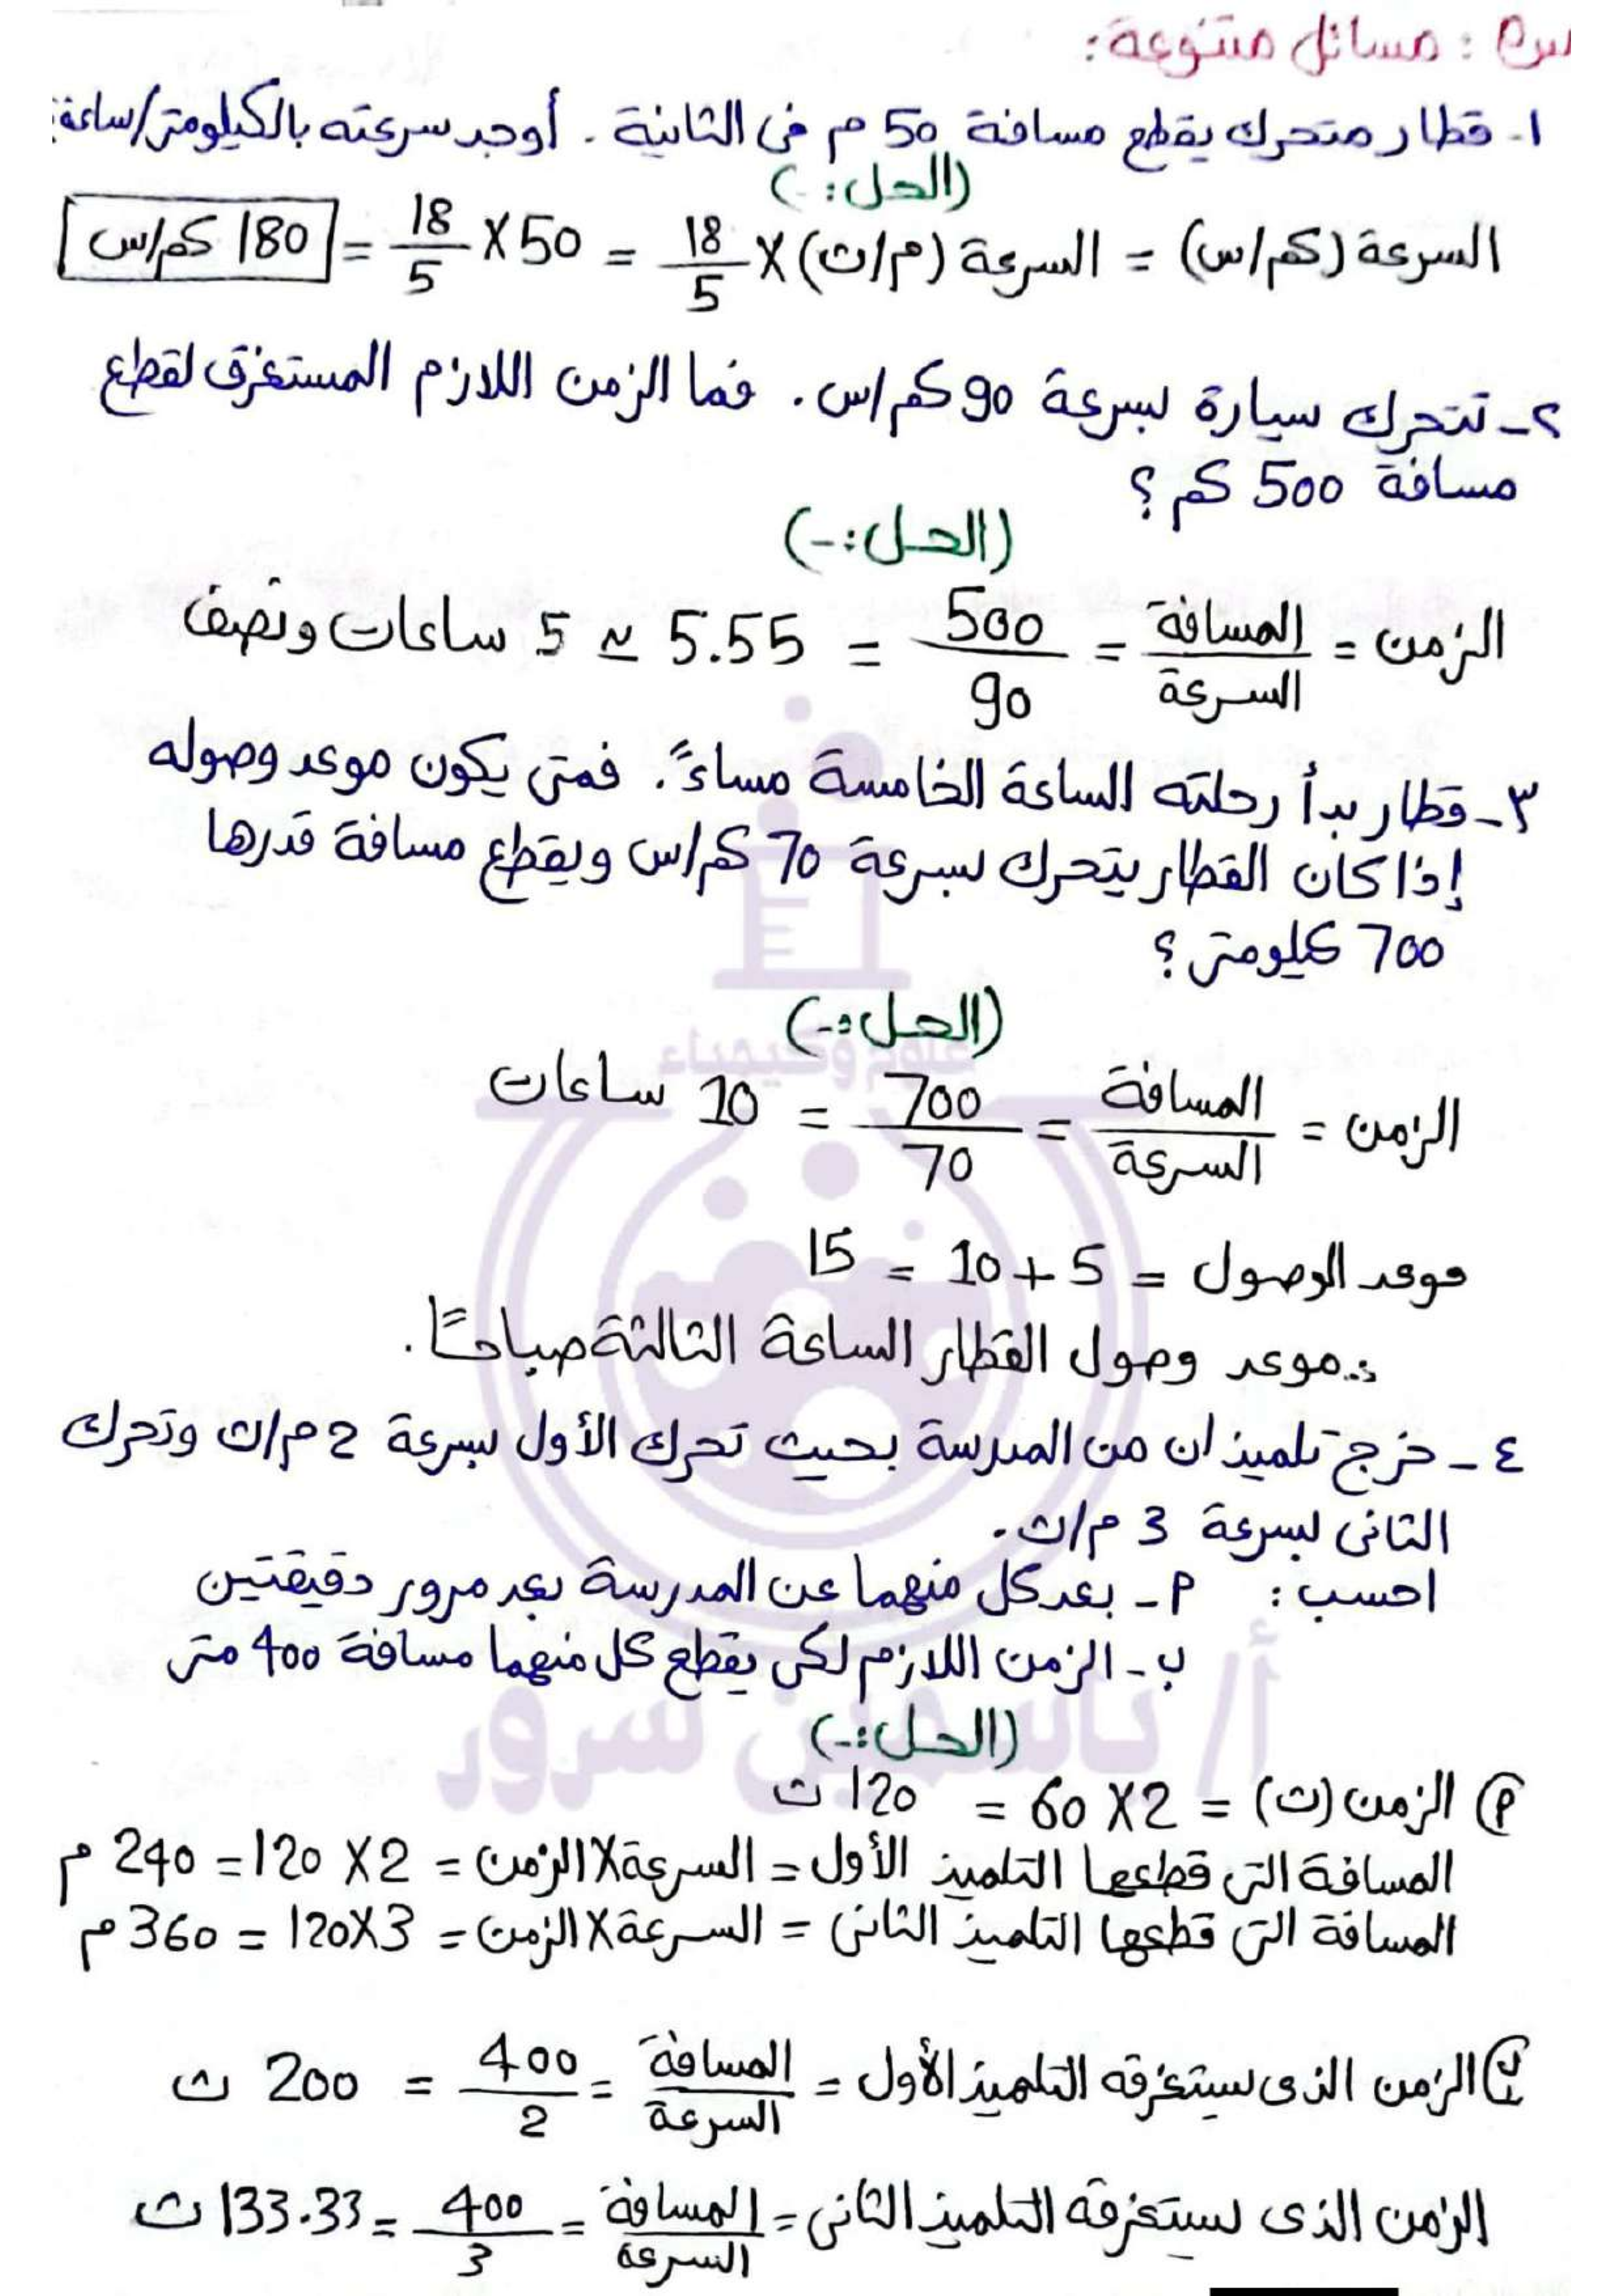 س٩ : مسائل متنوعة:
١- قطار متحرك يقطع مسافة 50 م فى الثانية . أوجد سرعته بالكيلومتر/ساعة:
(الحل:-)
السرعة (كم/س) = السرعة (م/ث) X 18/5 = 50 X 18/5 = 180 كم/س
٢- تتحرك سيارة بسرعة 90 كم/س . فما الزمن اللازم المستغرق لقطع
مسافة 500 كم ؟
(الحل:-)
الزمن = المسافة/السرعة = 500/90 = 5.55 ≃ 5 ساعات ونصف
٣- قطار بدأ رحلته الساعة الخامسة مساءً. فمتى يكون موعد وصوله
إذا كان القطار يتحرك بسرعة 70 كم/س ويقطع مسافة قدرها
700 كيلومتر ؟
(الحل:-)
علوم وكيمياء
الزمن = المسافة/السرعة = 700/70 = 10 ساعات
موعد الوصول = 5 + 10 = 15
∴ موعد وصول القطار الساعة الثالثة صباحًا .
٤- خرج تلميذان من المدرسة بحيث تحرك الأول بسرعة 2 م/ث وتحرك
الثانى بسرعة 3 م/ث .
احسب : ٩- بعد كل منهما عن المدرسة بعد مرور دقيقتين
ب- الزمن اللازم لكى يقطع كل منهما مسافة 400 متر
أ/ ياسمين سرور
(الحل:-)
٩ الزمن (ث) = 2 X 60 = 120 ث
المسافة التى قطعها التلميذ الأول = السرعة X الزمن = 2 X 120 = 240 م
المسافة التى قطعها التلميذ الثانى = السرعة X الزمن = 3 X 120 = 360 م
ب الزمن الذى سيتغرقه التلميذ الأول = المسافة/السرعة = 400/2 = 200 ث
الزمن الذى سيتغرقه التلميذ الثانى = المسافة/السرعة = 400/3 = 133.33 ث